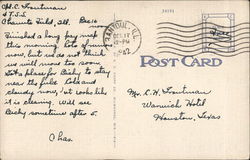 Cpl. C. Troutman
4 T.S.S.
Chanute Field, Ill. Dec 16
Finished a long pay map
this morning. Lots of
move, but we do not think
we will move too soon.
Got a place for Bicky to stay
near the field. Cold and
cloudy now, but looks like
it is clearing. Will see
Bicky sometime after 5.
Chas.
RANTOUL, ILL.
DEC 17
PM
1942
Free
POST CARD
Mr. C. H. Troutman
Warwick Hotel
Houston, Texas